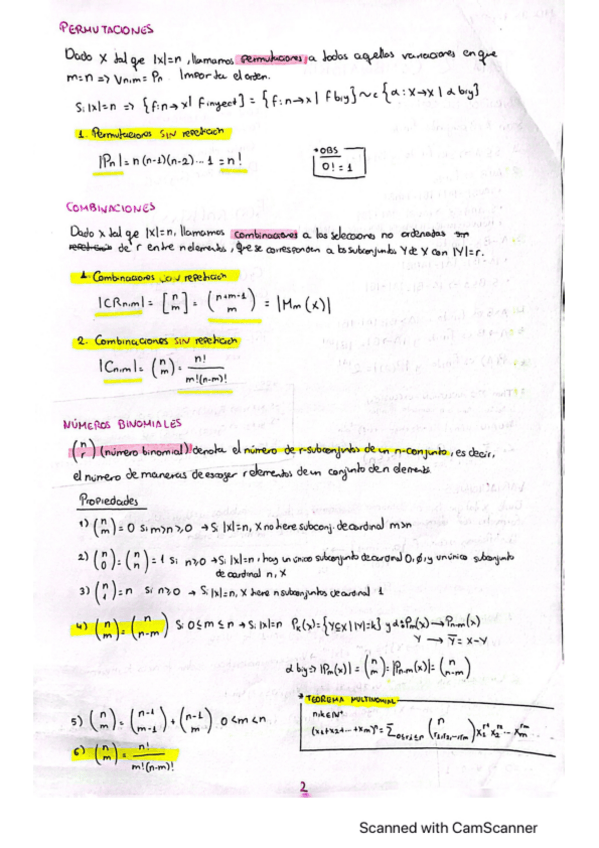 PERMUTACIONES
Dado X tal que |X|=n, llamamos permutaciones a todas aquellas variaciones en que
m=n => Vn,m = Pn. Importa el orden.
Si |X|=n => {f:n→X| f inyect} = {f:n→X| f biy} ~c {α: X→X | α biy}
1. Permutaciones SIN repetición
|Pn| = n(n-1)(n-2)... 1 = n!
* OBS
0! = 1
COMBINACIONES
Dado X tal que |X|=n, llamamos combinaciones a las selecciones no ordenadas
de r entre n elementos, que se corresponden a los subconjuntos Y de X con |Y|=r.
1. Combinaciones con repetición
|CRn,m| = [n m] = (n+m-1 m) = |Mm(X)|
2. Combinaciones SIN repetición
|Cn,m| = (n m) = n! / m!(n-m)!
NÚMEROS BINOMIALES
(n r) (número binomial) denota el número de r-subconjuntos de un n-conjunto, es decir,
el número de maneras de escoger r elementos de un conjunto de n elements.
Propiedades
1) (n m) = 0 si m>n≥0 → Si |X|=n, X no tiene subconj. de cardinal m>n
2) (n 0) = (n n) = 1 si n≥0 → Si |X|=n, hay un único subconjunto de cardinal 0, ∅, y un único subconjunto
de cardinal n, X
3) (n 1) = n si n≥0 → Si |X|=n, X tiene n subconjuntos de cardinal 1
4) (n m) = (n n-m) si 0≤m≤n → Si |X|=n Pk(X)={Y⊆X | |Y|=k} y α: Pm(X) → Pn-m(X)
Y → Y̅ = X-Y
α biy => |Pm(X)| = (n m) = |Pn-m(X)| = (n n-m)
* TEOREMA MULTINOMIAL
n,k∈N*
(x1+x2+...+xm)ⁿ = Σ0≤ri≤n (n r1,r2,...,rm) x1^r1 x2^r2 ... xm^rm
5) (n m) = (n-1 m-1) + (n-1 m) 0<m<n
6) (n m) = n! / m!(n-m)!
2
Scanned with CamScanner